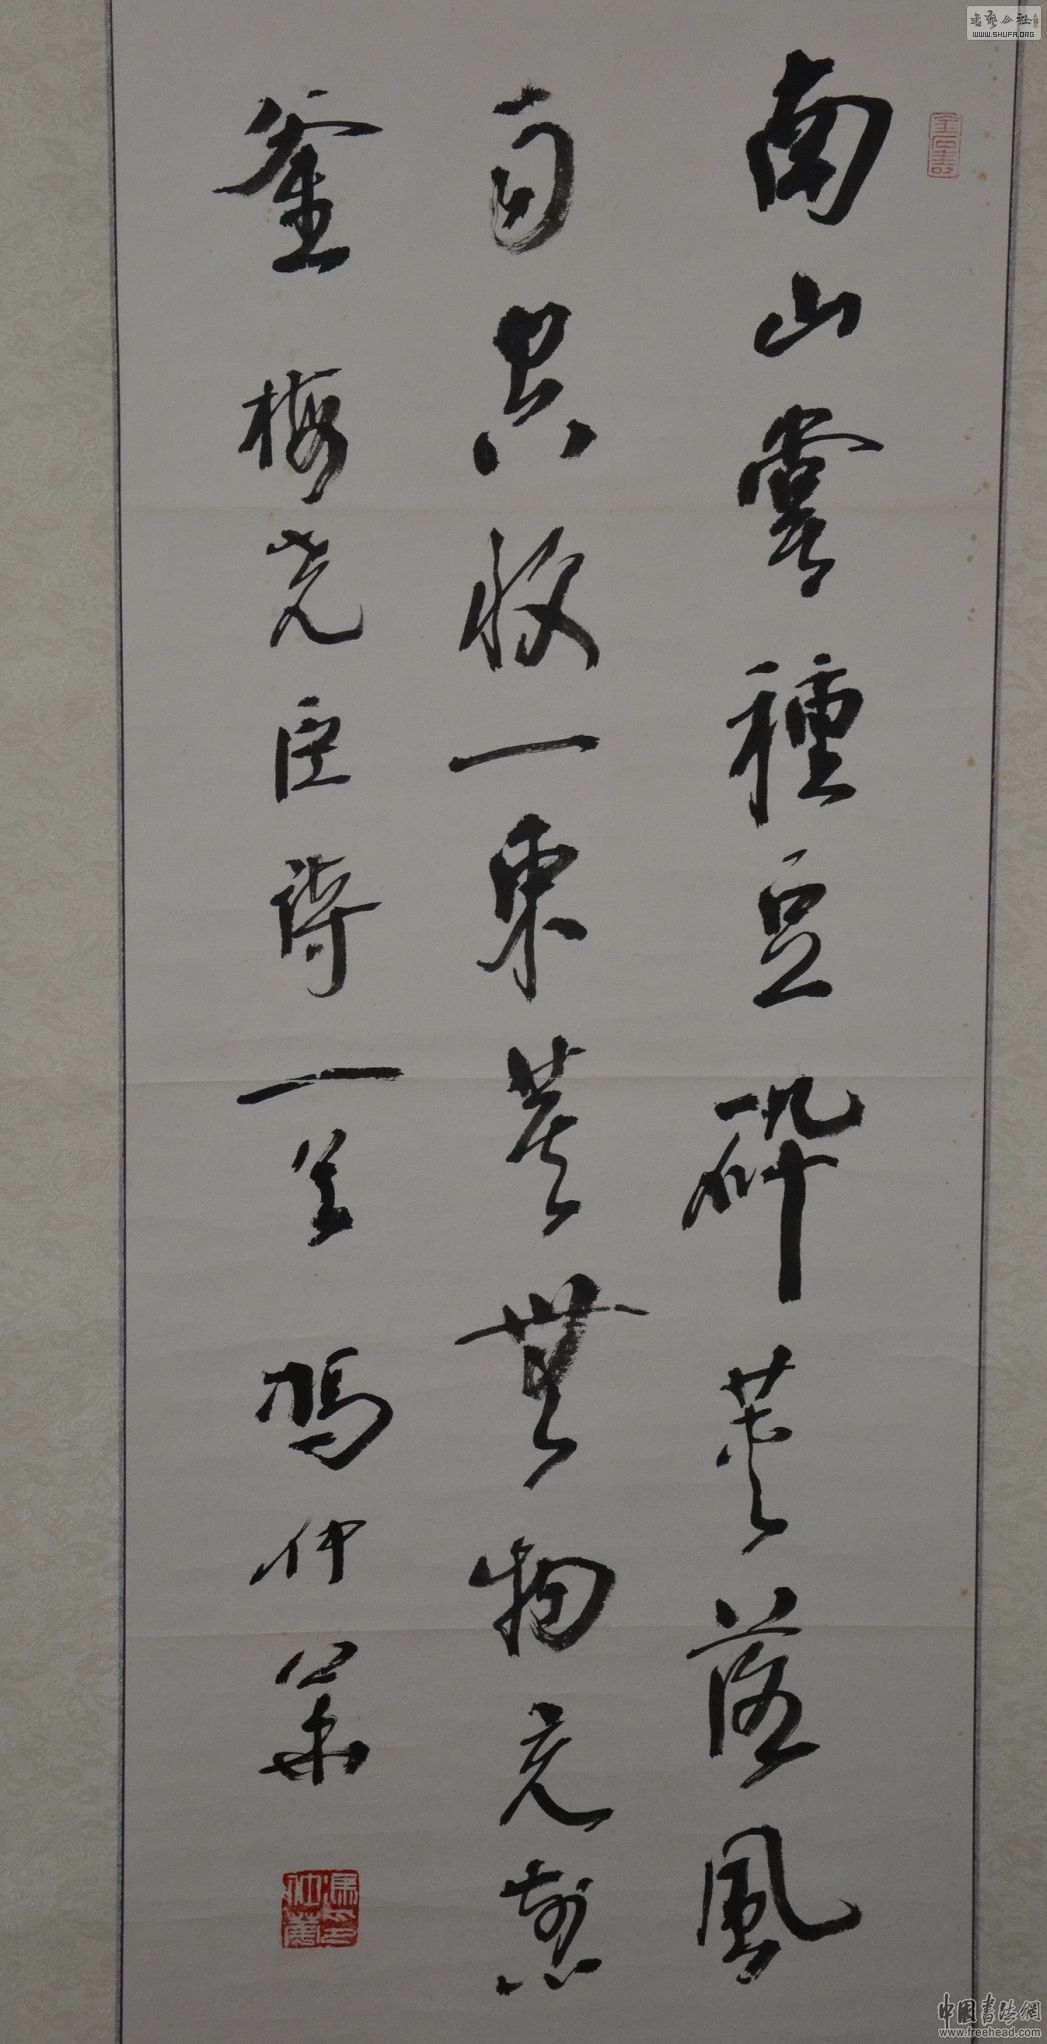 南山嘗種豆碎莢落風
雨空收一束萁無物充煎
釜 梅尧臣詩一首 馮仲華
金石壽
書藝公社
WWW.SHUFA.ORG
中國書法網
www.freehead.com